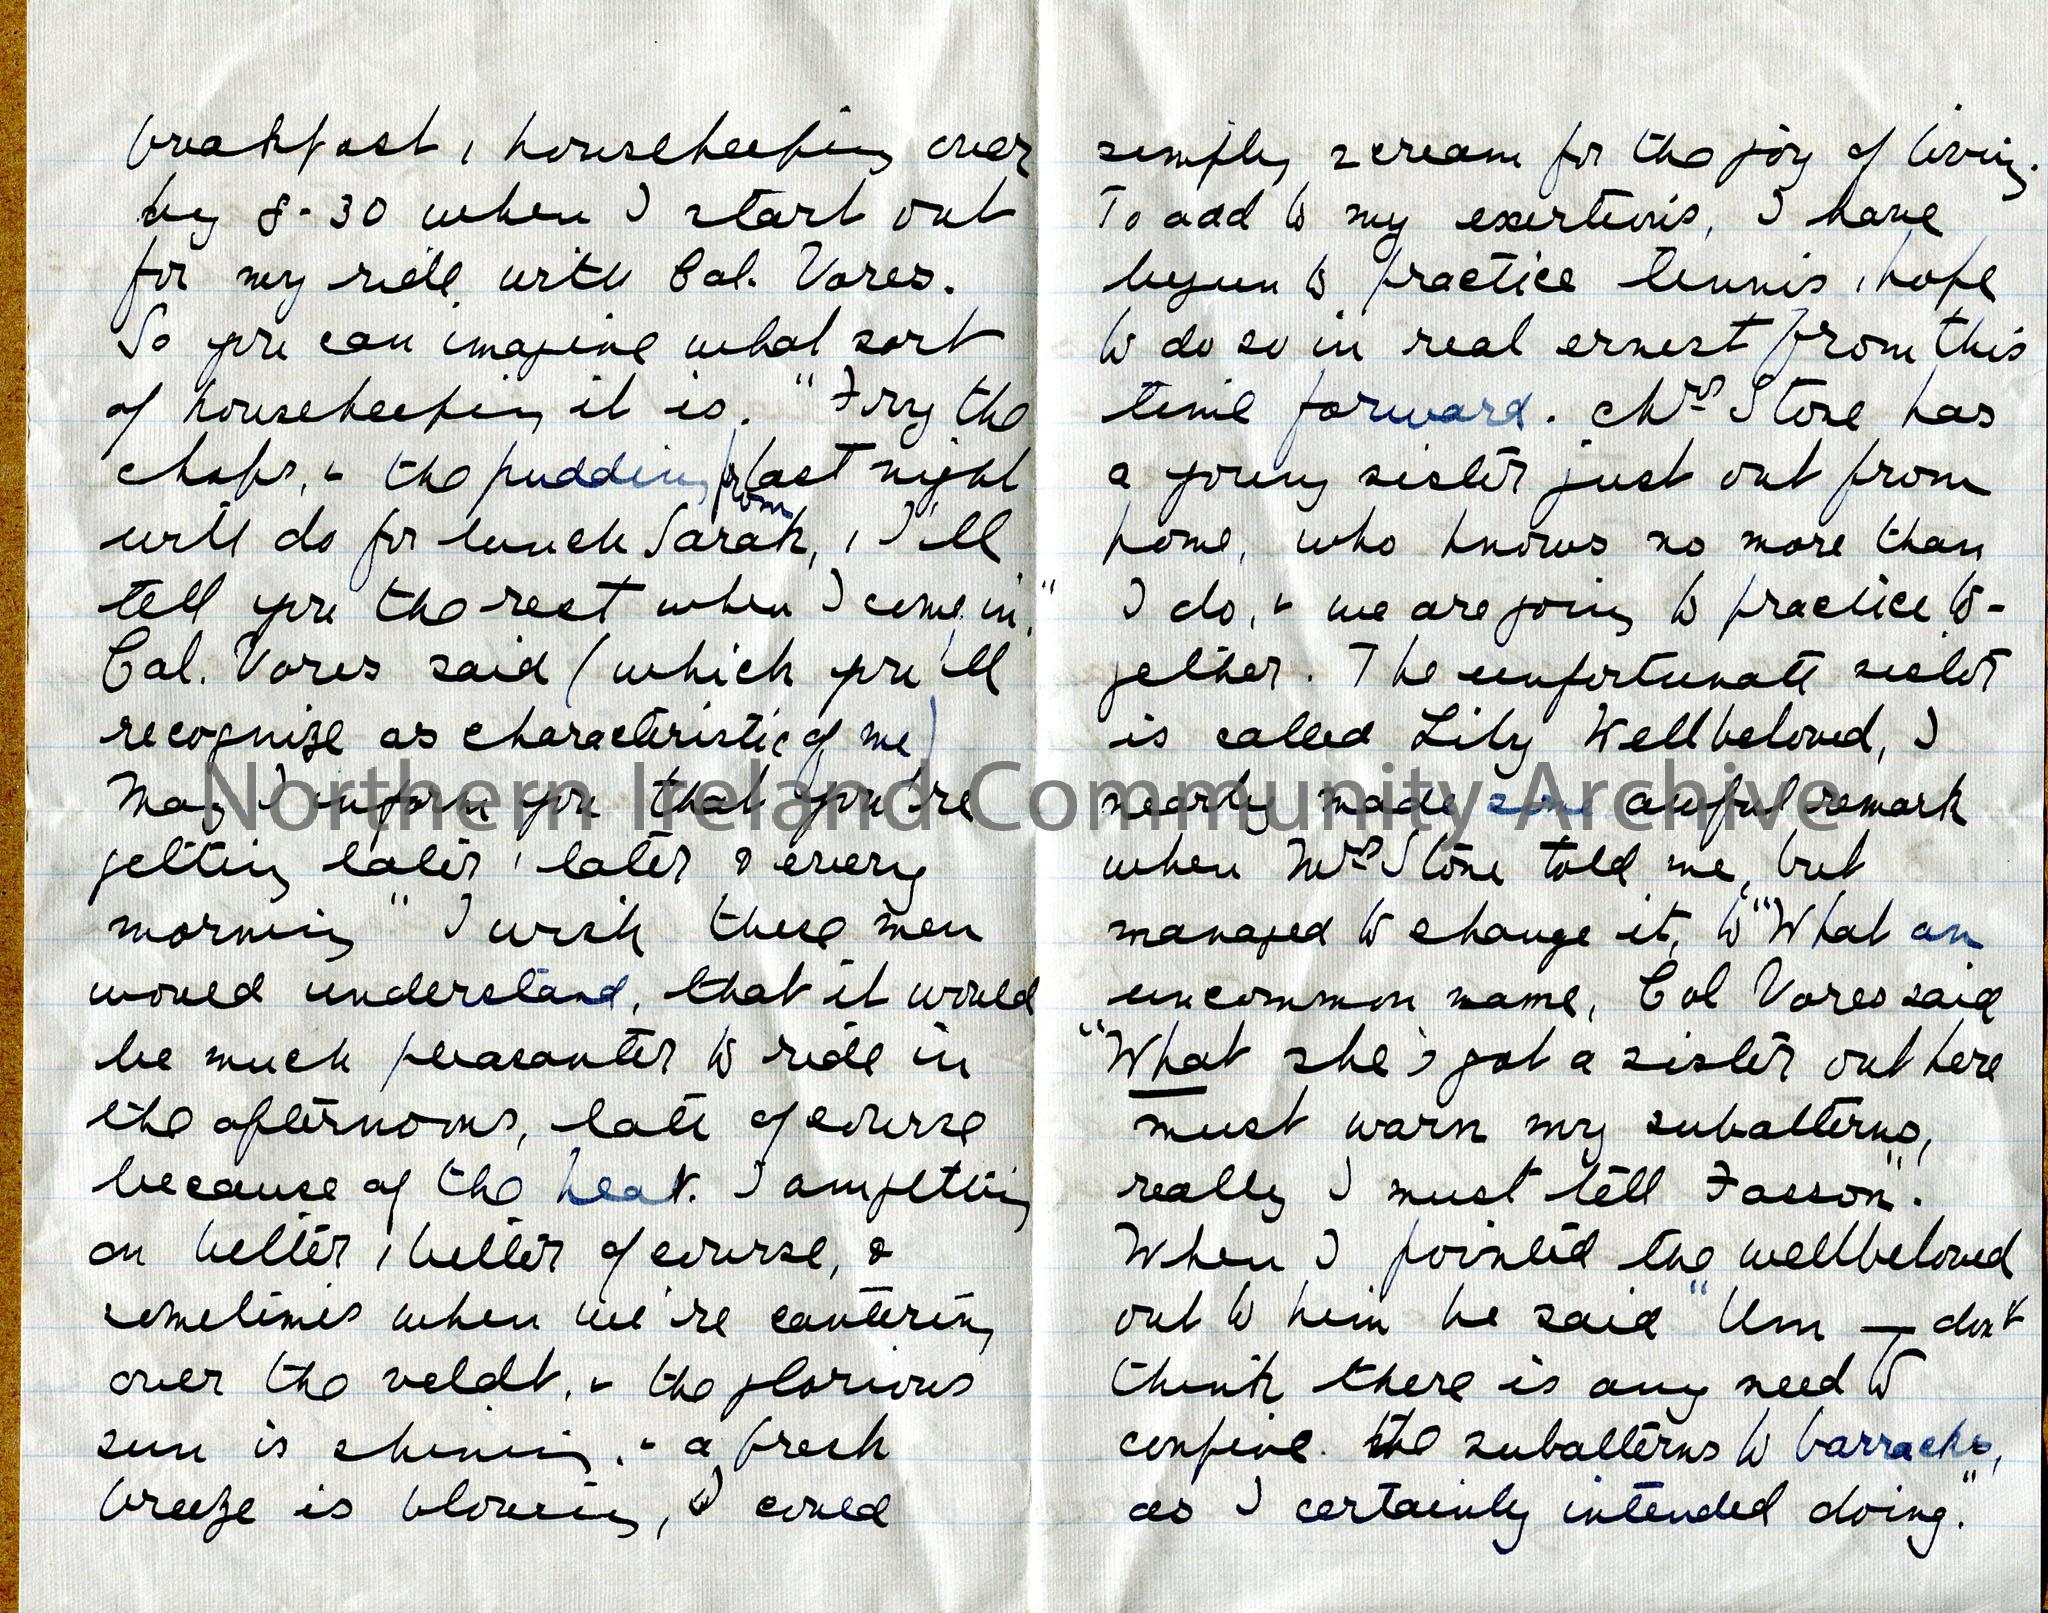 breakfast, & housekeeping over
by 8-30 when I start out
for my ride with Col. Vores.
So you can imagine what sort
of housekeeping it is. "Fry the
chops, & the pudding from last night
will do for lunch Sarah, & I'll
tell you the rest when I come in."
Col. Vores said (which you'll
recognize as characteristic of me)
May I inform you that you're
getting later & later & every
morning" I wish these men
would understand, that it would
be much pleasanter to ride in
the afternoons, late of course
because of the heat. I am getting
on better & better of course, &
sometimes when we're cantering
over the veldt, & the glorious
sun is shining, & a fresh
breeze is blowing, I could
simply scream for the joy of living.
To add to my exertions, I have
begun to practice tennis & hope
to do so in real ernest from this
time forward. Mrs Stone has
a young sister just out from
home, who knows no more than
I do, & we are going to practice to-
gether. The unfortunate sister
is called Lily Wellbeloved, I
nearly made some awful remark
when Mrs Stone told me, but
managed to change it, to "What an
uncommon name, Col Vores said
"What she's got a sister out here
must warn my subalterns,
really I must tell Fasson".
When I pointed the wellbeloved
out to him he said "Um — dont
think there is any need to
confine the subalterns to barracks,
as I certainly intended doing."
Northern Ireland Community Archive